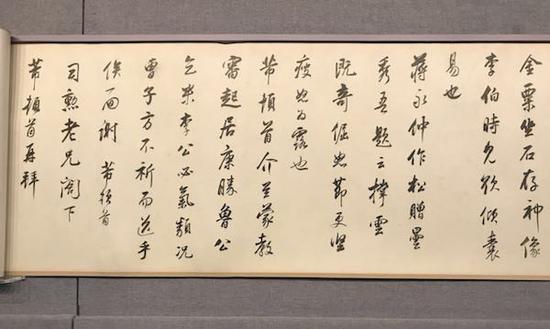 金粟坐石存神像
李伯時欲傾囊
易也
蔣永仲作松贈墨
秀吾題云撐雲
既奇倔如節更堅
瘦如露也
芾頓首介至蒙教
審起居康勝魯公
乞米李公必氣類況
曹子方不祈而送乎
俟面謝 芾頓首
司勳老兄閤下
芾頓首再拜